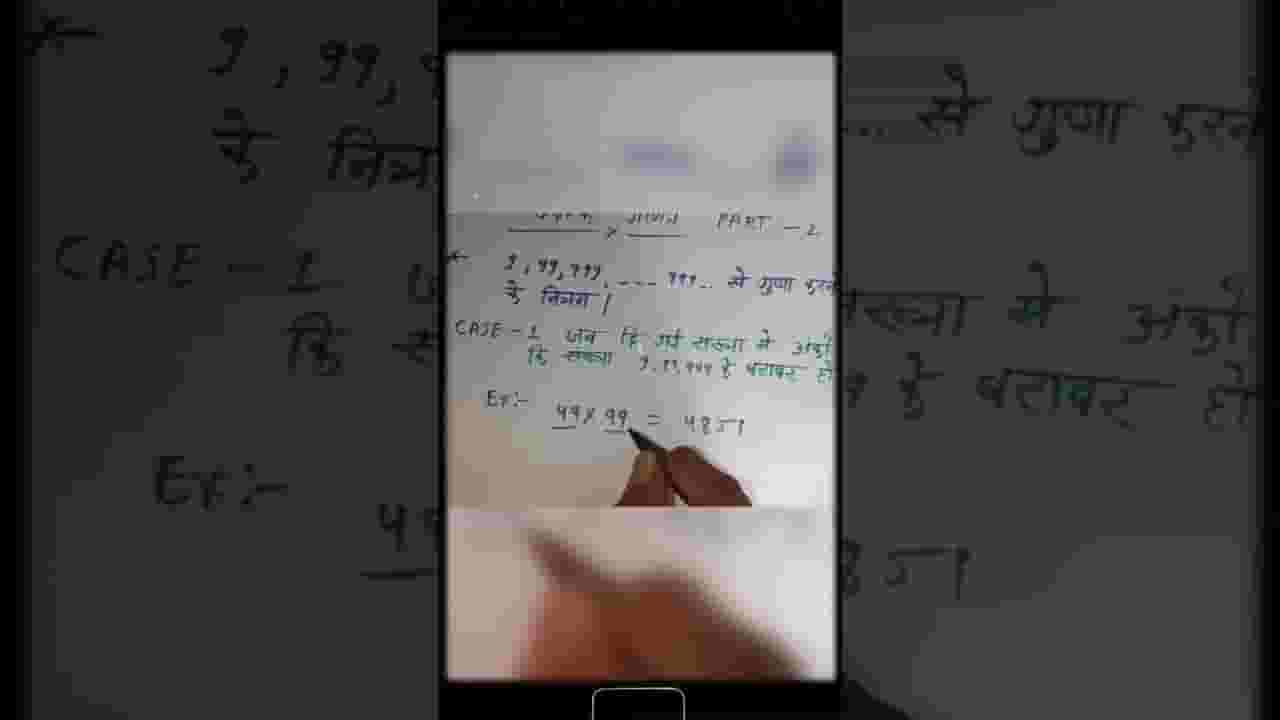 PART - 2
9, 99, 999, ---- 999.. से गुणा करने
के नियम।
CASE - 1 जब दि गई संख्या मे अंको
कि संख्या 9,99,999 के बराबर हो
Ex:-
49 x 99 = 4851